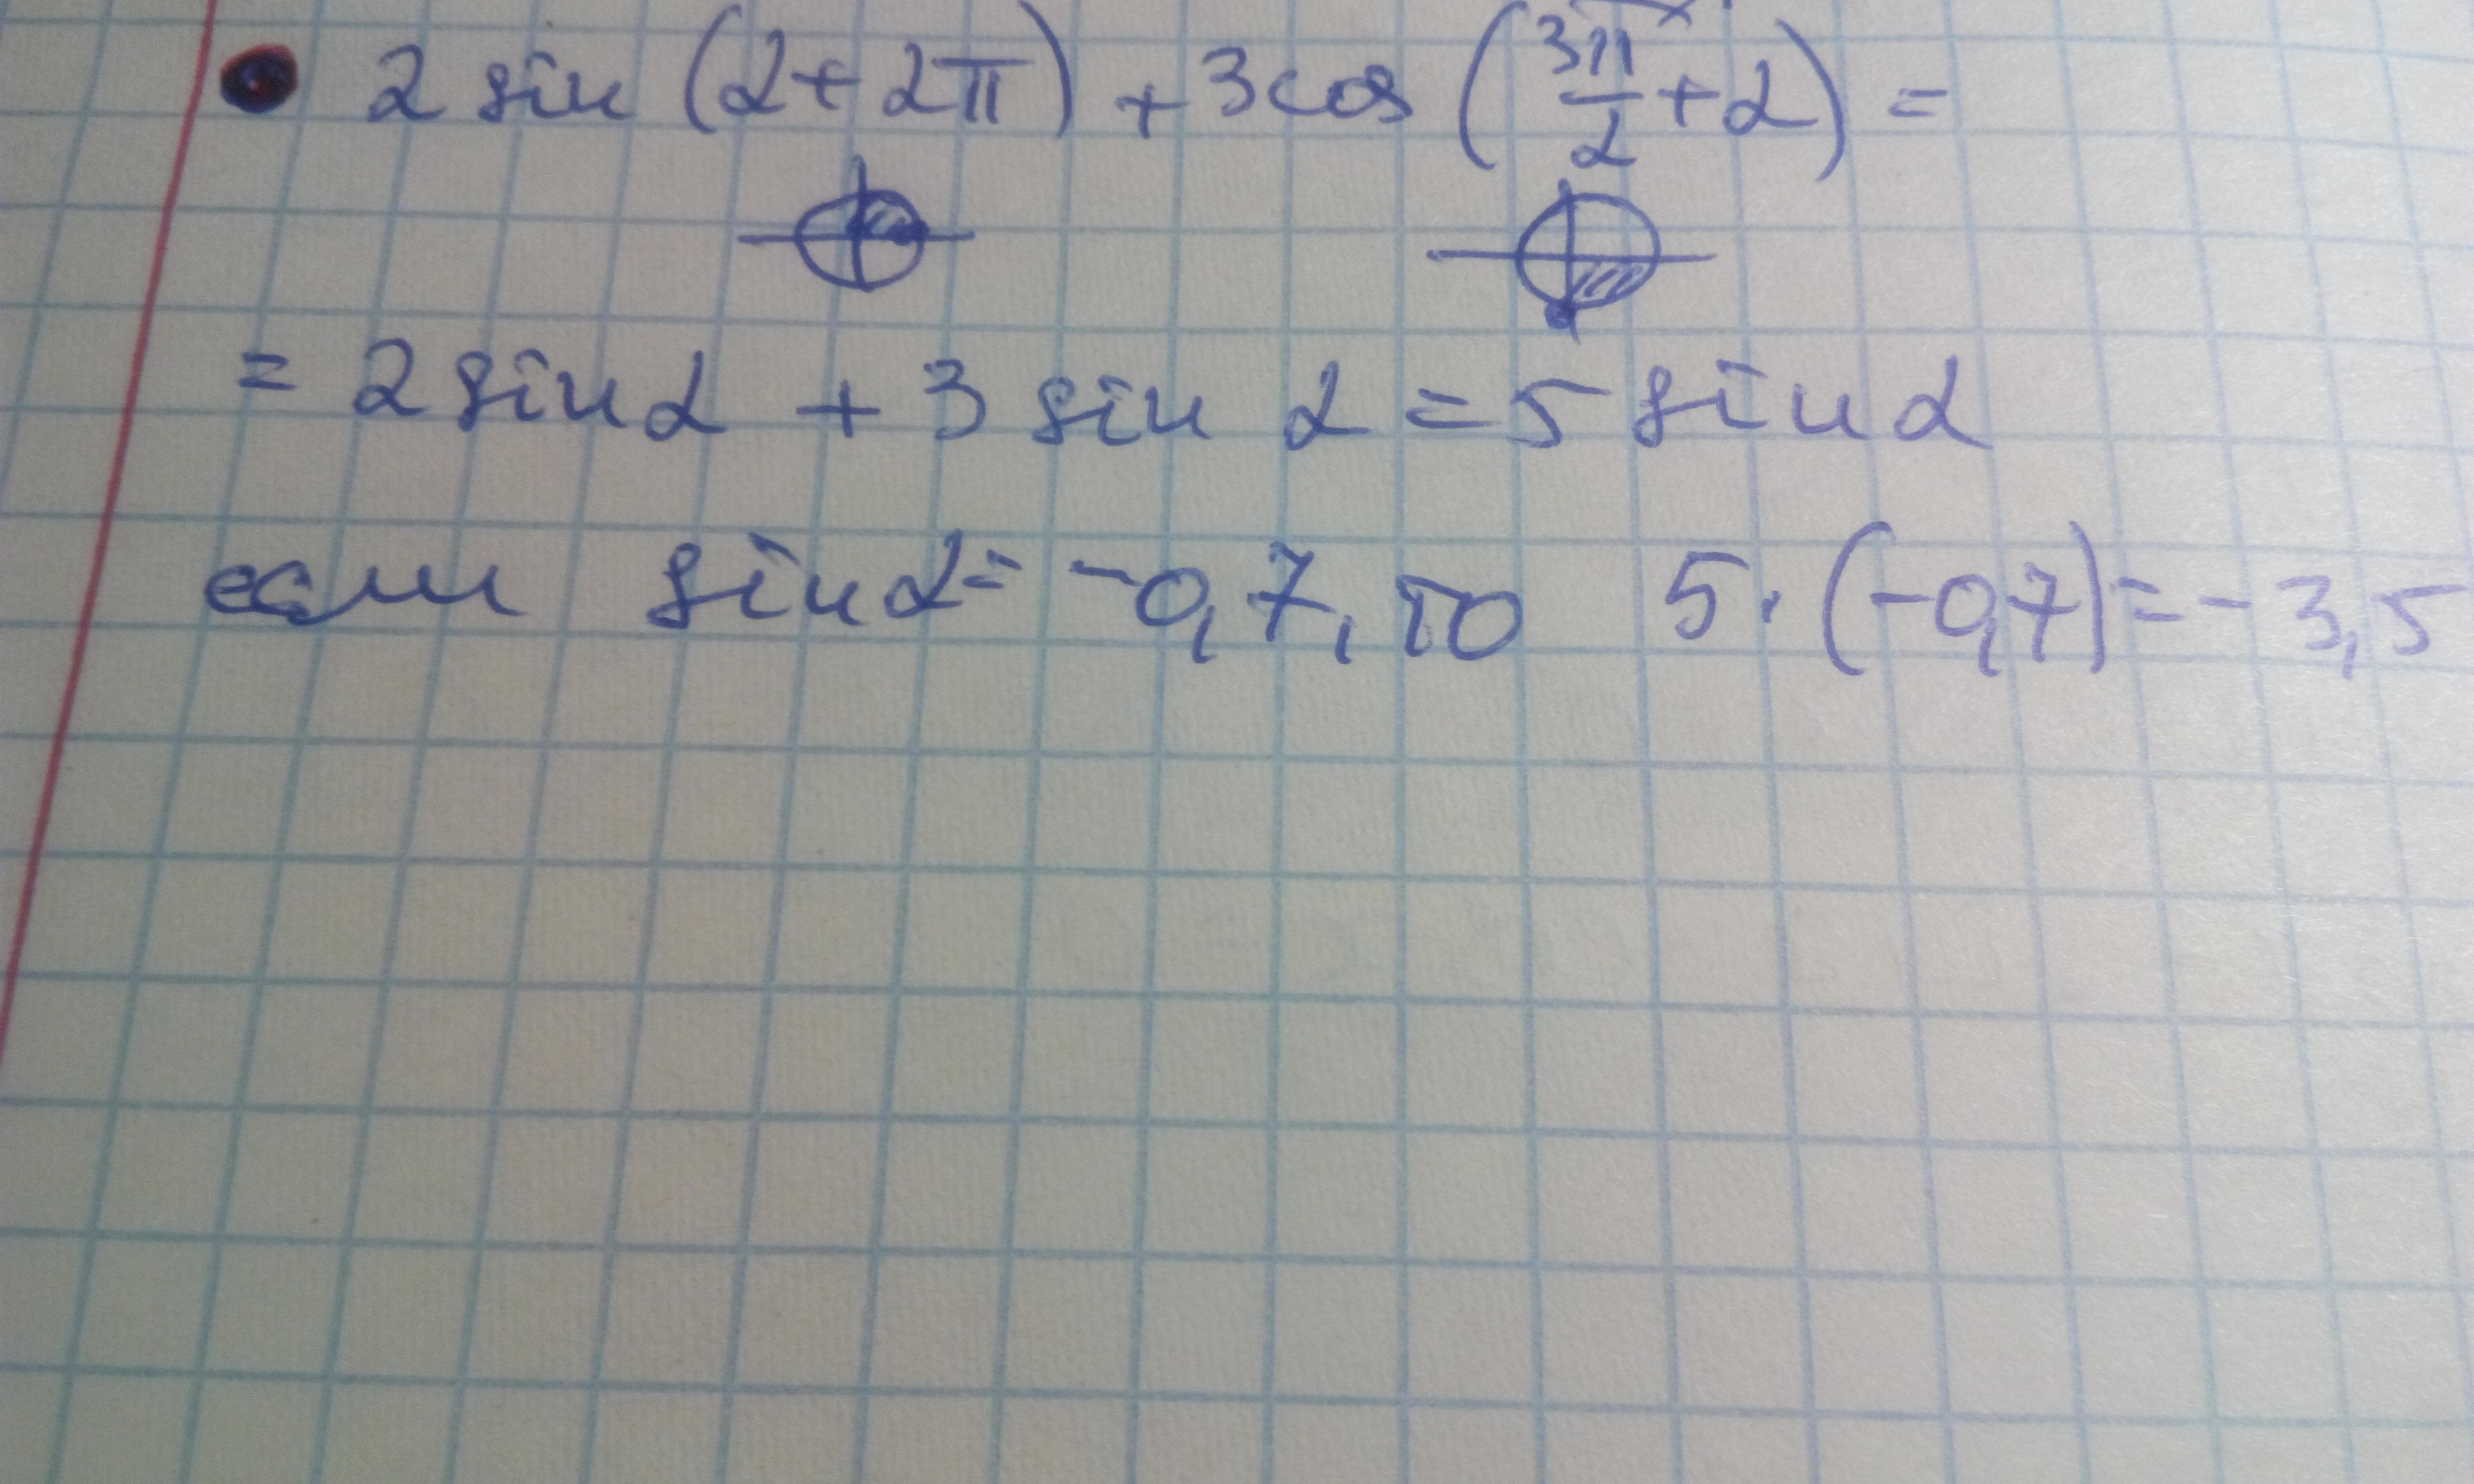 2 sin (α + 2π) + 3 cos (3π/2 + α) =
= 2 sin α + 3 sin α = 5 sin α
если sin α = -0,7, то 5 · (-0,7) = -3,5